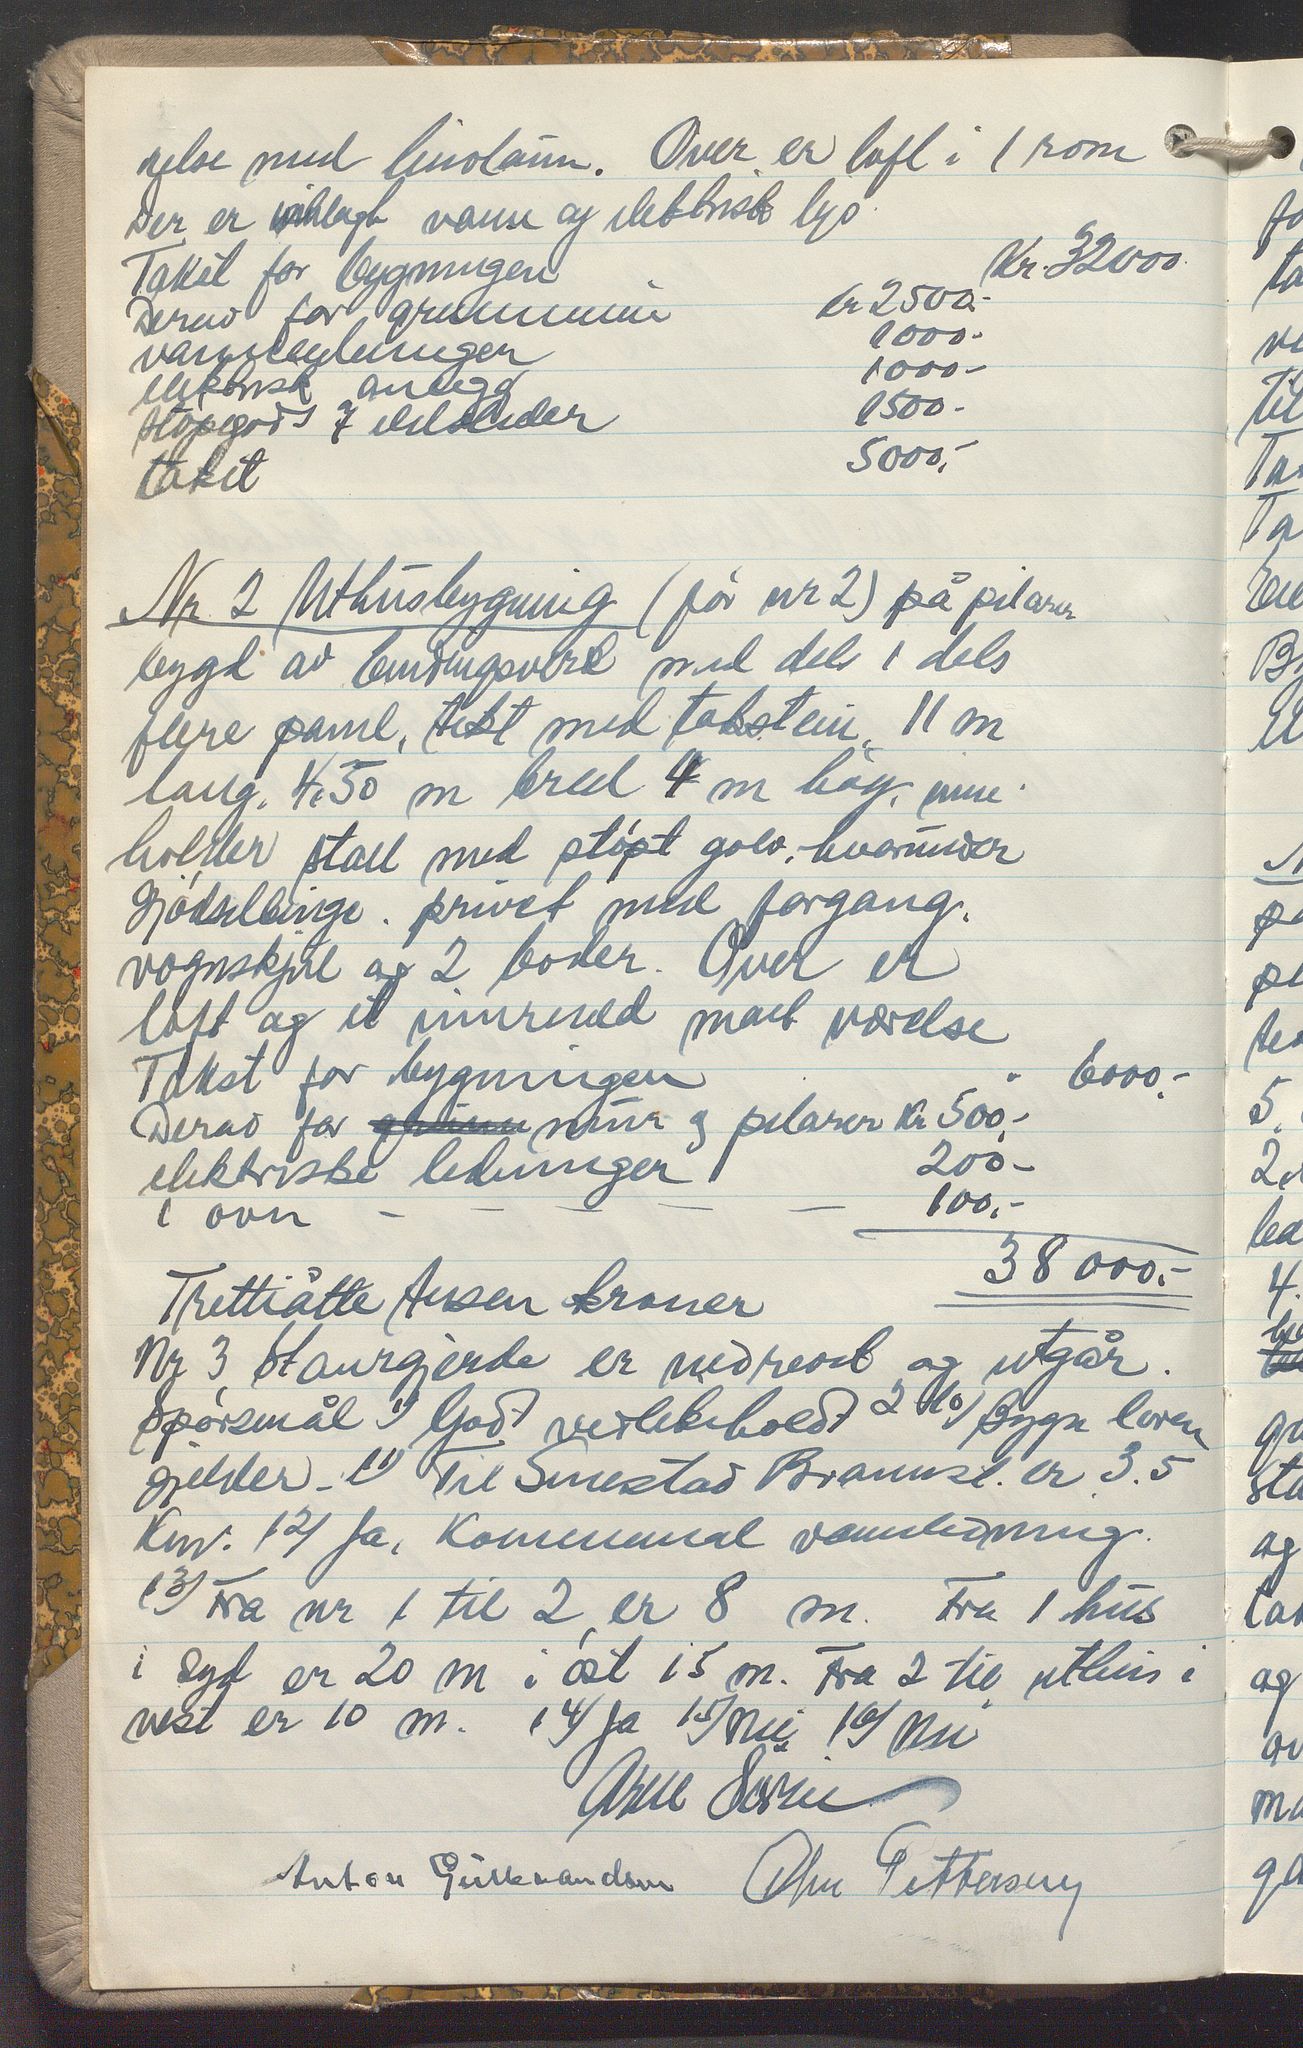 else med linoleum. Over er loft i 1 rom
Der er innlagt vann og elektrisk lys.
Takst for bygningen Kr. 32000
Derav for grunnmur kr 2500.-
vannledninger 1000.-
elektrisk anlegg 1000.-
støpegods 7 ildsteder 1500.-
takst 5000,-
Nr 2 Uthusbygning (før nr 2) på pilarer
bygd av bindingsverk med dels 1 dels
flere panel, tekt med takstein, 11 m
lang, 4,50 m bred 4 m høg, inne
holder stall med støpt golv, hvorunder
Gjødselbinge. privet med forgang,
vognskjul og 2 boder. Over er
loft og et innredd malt værelse
Takst for bygningen " 6000,-
Derav for grunn mur og pilarer kr 500,-
elektriske ledninger 200.-
1 ovn - - - - - 100,-
38000.-
Trettiåtte tusen kroner
Nr 3 Staurgjerde er nedrevet og utgår.
Spørsmål 1) God vedlikeholdt 2 10) Bygn loven
gjelder. 11) Til Brannst. er 3.5
Km. 12) Ja, Kommunal vannledning.
13) Fra nr 1 til 2 er 8 m. Fra 1 hus
i syd er 20 m i øst 15 m. Fra 2 til uthus i
vest er 10 m. 14) Ja 15) Nei 16) Nei
Anton Gulbrandsen